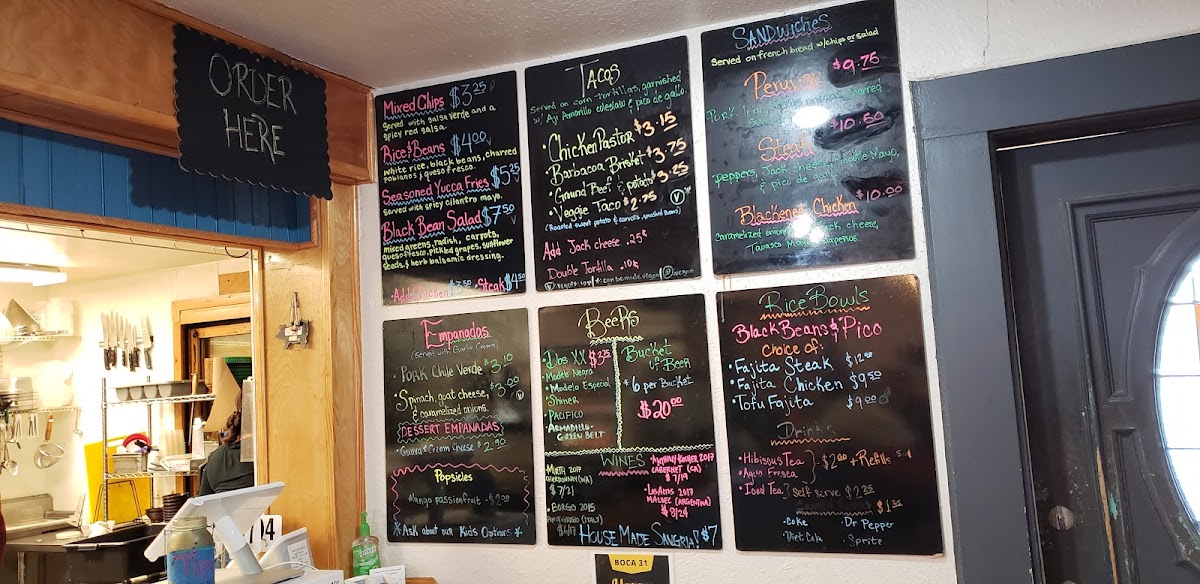 ORDER
HERE
Mixed Chips $3.25
Served with salsa verde and a
spicy red salsa.
Rice & Beans $4.00
white rice, black beans, charred
poblanos & queso fresco.
Seasoned Yucca Fries $5.25
served with spicy cilantro mayo.
Black Bean Salad $7.50
mixed greens, radish, carrots,
queso fresco, pickled grapes, sunflower
seeds, & herb balsamic dressing.
Add Chicken $3.50 Steak $4.50
TACOS
Served on corn tortillas, garnished
w/ Aji Amarillo coleslaw & pico de gallo.
• Chicken Pastor $3.15
Barbacoa Brisket $3.75
• Ground Beef & potato $3.25
• Veggie Taco $2.75 V
(Roasted sweet potato & carrots, smashed beans)
Add Jack cheese .25¢
Double Tortilla .10¢
SANDWICHES
Served on french bread w/chips or salad
Peruvian $9.75
Pork
$10.50
Steak
peppers, Jack cheese, Mayo,
& pico de gallo.
$10.00
Blackened Chicken
caramelized onions, jack cheese,
Tabasco Mayo, jalapeños.
Empanadas
(served with Garlic Crema)
• Pork Chile Verde $3.10
• Spinach, goat cheese, $3.00
and caramelized onions. V
DESSERT EMPANADAS
• Guava & Cream Cheese $2.90
Popsicles
Mango passionfruit - $2.00
* Ask about our Kids Options *
BEERS
• Dos XX $3.75
• Modelo Negra
• Modelo Especial
• Shiner
• PACIFICO
• ARMADILLO
GREEN BELT
Bucket
of Beer
* 6 per Bucket
$20.00
WINES
MIRTH 2017
CHARDONNAY (WA)
$7/21
• BORGO 2015
PINOT GRIGIO (ITALY)
$6/17
CABERNET (CA)
$7/19
2017
MALBEC (ARGENTINA)
$8/24
HOUSE MADE SANGRIA! $7
Rice Bowls
Black Beans & Pico
Choice of:
• Fajita Steak $12.00
• Fajita Chicken $9.50
• Tofu Fajita $9.00
Drinks
• Hibiscus Tea
• Agua Fresca
$2.00 + Refills
• Iced Tea } self serve $2.25
$1.35
• Coke
• Dr Pepper
• Diet Coke
• Sprite
04
TIPS
BOCA 31